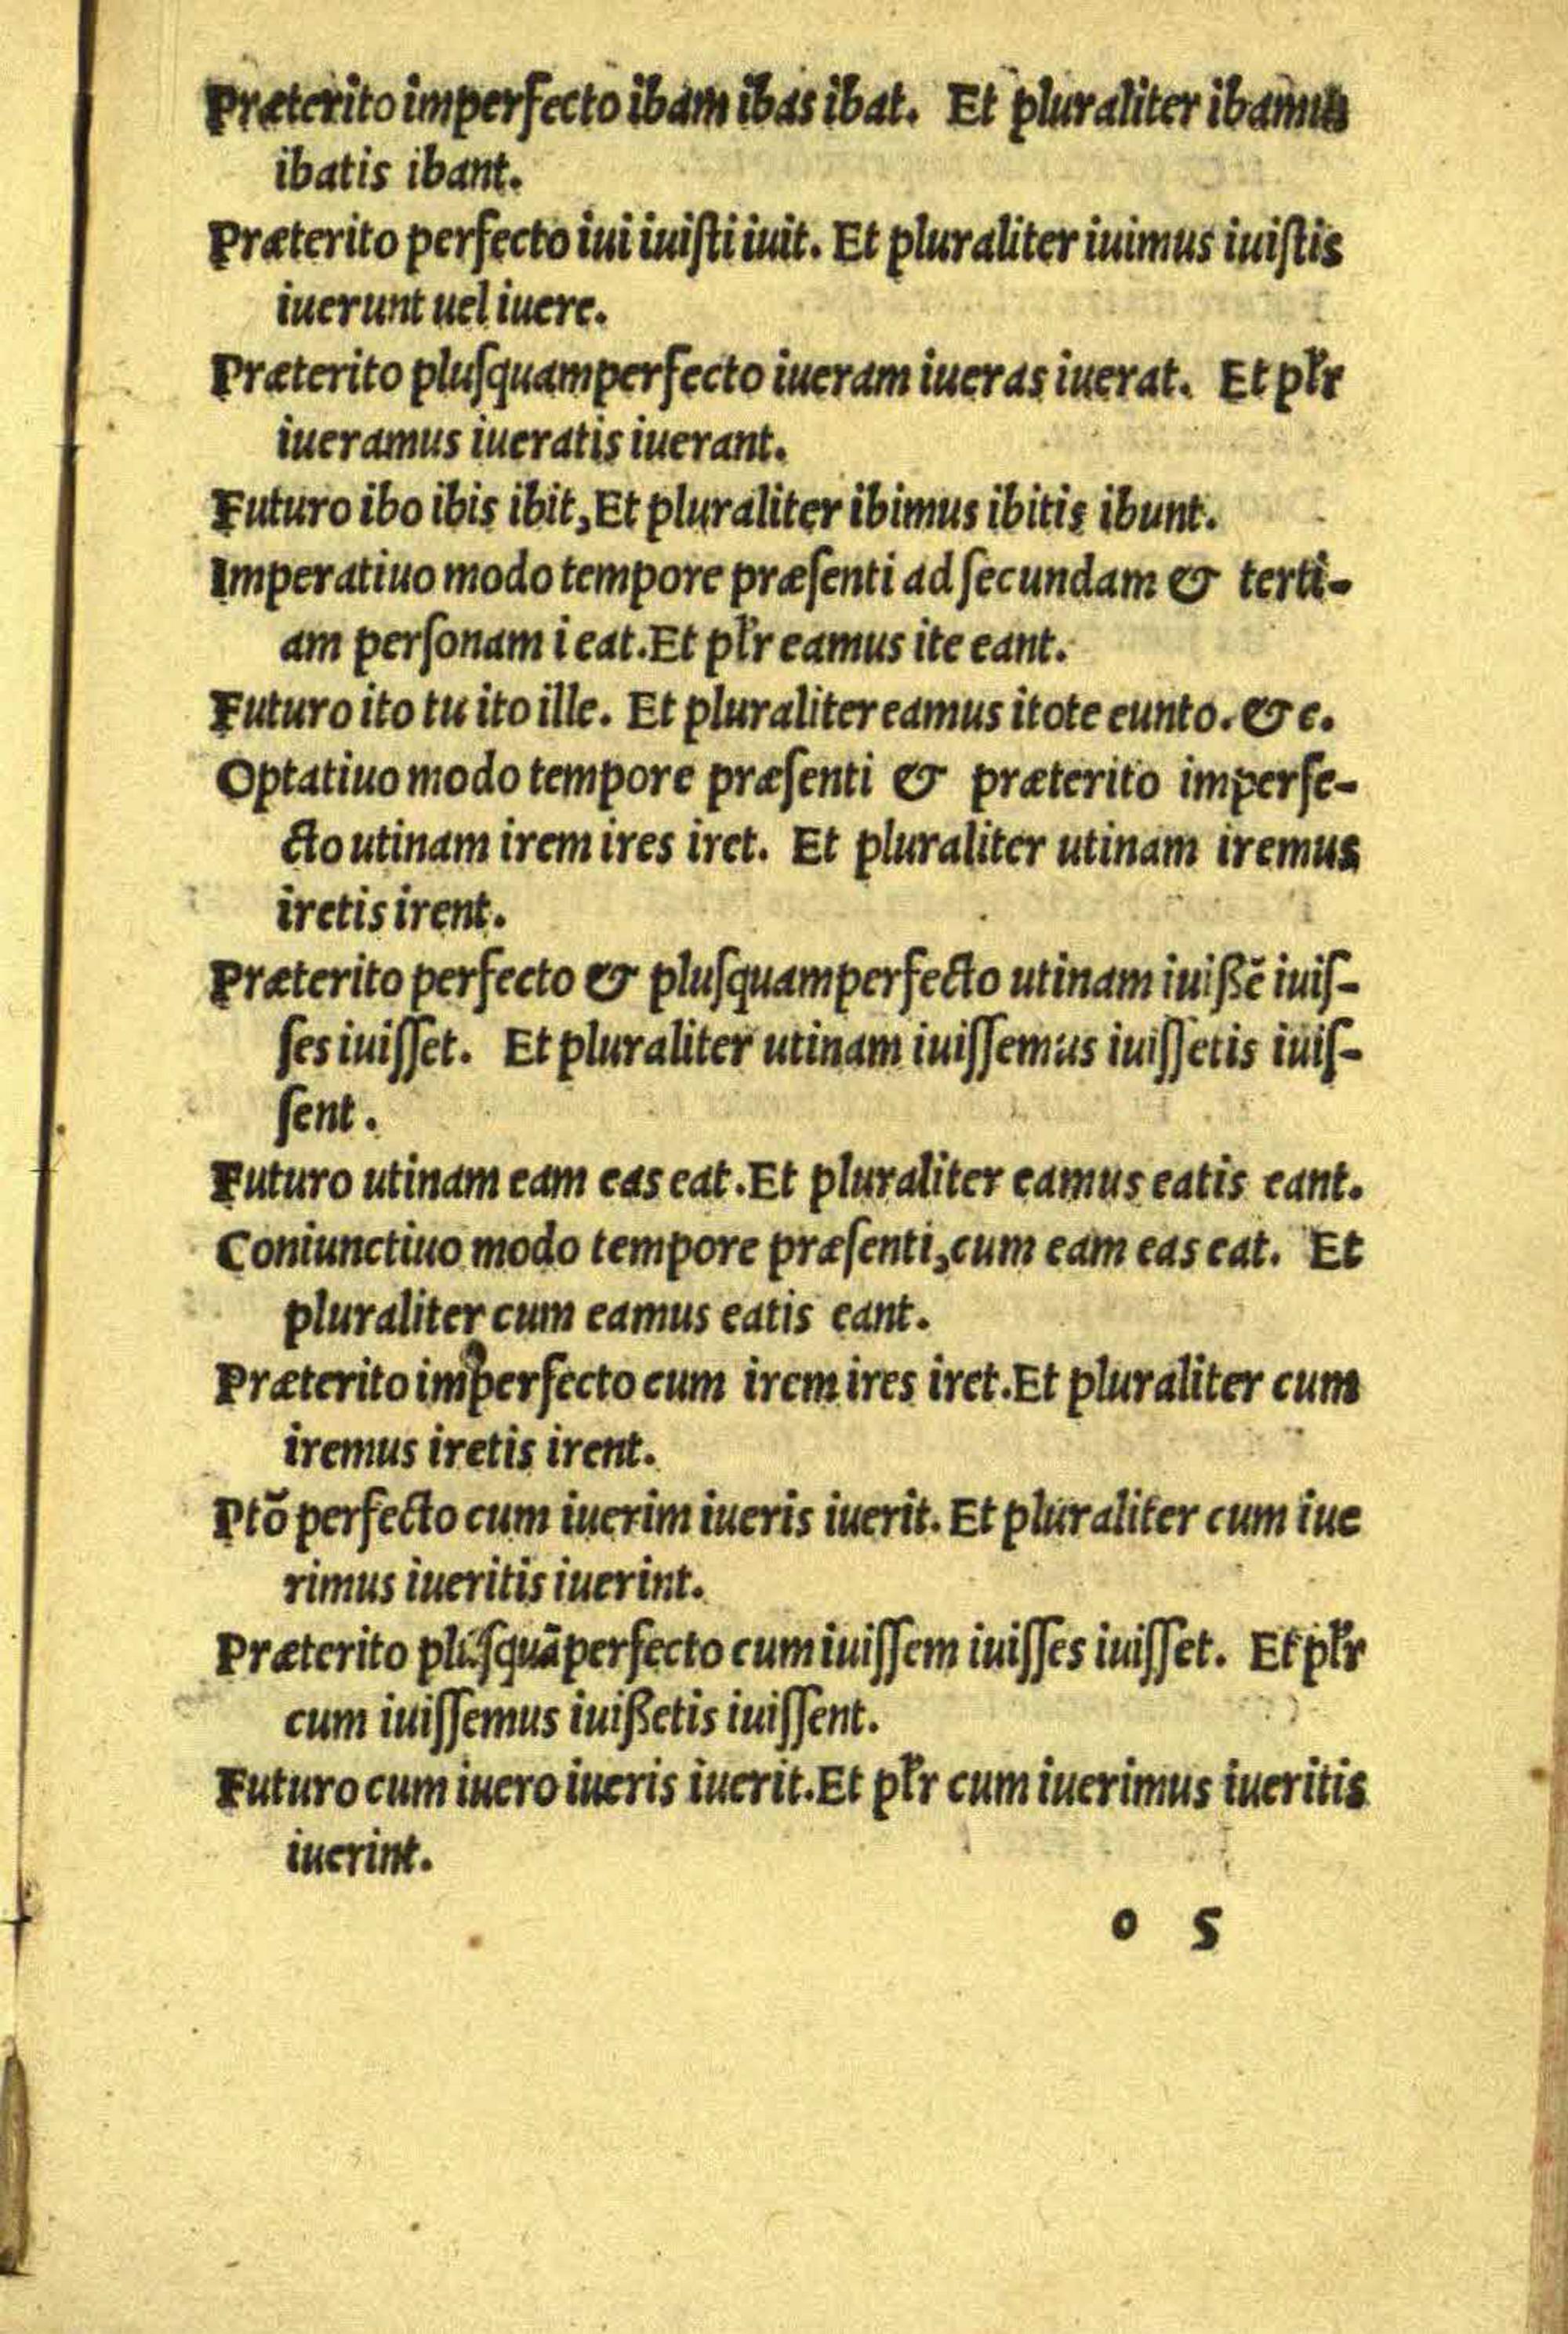 Præterito imperfecto ibam ibas ibat. Et pluraliter ibamus
ibatis ibant.
Præterito perfecto iui iuiſti iuit. Et pluraliter iuimus iuiſtis
iuerunt uel iuere.
Præterito pluſquamperfecto iueram iueras iuerat. Et pl̃r
iueramus iueratis iuerant.
Futuro ibo ibis ibit, Et pluraliter ibimus ibitis ibunt.
Imperatiuo modo tempore præſenti ad ſecundam & terti-
am perſonam i eat. Et pl̃r eamus ite eant.
Futuro ito tu ito ille. Et pluraliter eamus itote eunto. &c.
Optatiuo modo tempore præſenti & præterito imperfe-
cto utinam irem ires iret. Et pluraliter utinam iremus
iretis irent.
Præterito perfecto & pluſquamperfecto utinam iuißẽ iuiſ-
ſes iuiſſet. Et pluraliter utinam iuiſſemus iuiſſetis iuiſ-
ſent.
Futuro utinam eam eas eat. Et pluraliter eamus eatis eant.
Coniunctiuo modo tempore præſenti, cum eam eas eat. Et
pluraliter cum eamus eatis eant.
Præterito imperfecto cum irem ires iret. Et pluraliter cum
iremus iretis irent.
Ptõ perfecto cum iuerim iueris iuerit. Et pluraliter cum iue
rimus iueritis iuerint.
Præterito pluſquãperfecto cum iuiſſem iuiſſes iuiſſet. Et pl̃r
cum iuiſſemus iuißetis iuiſſent.
Futuro cum iuero iueris iuerit. Et pl̃r cum iuerimus iueritis
iuerint.
o 5